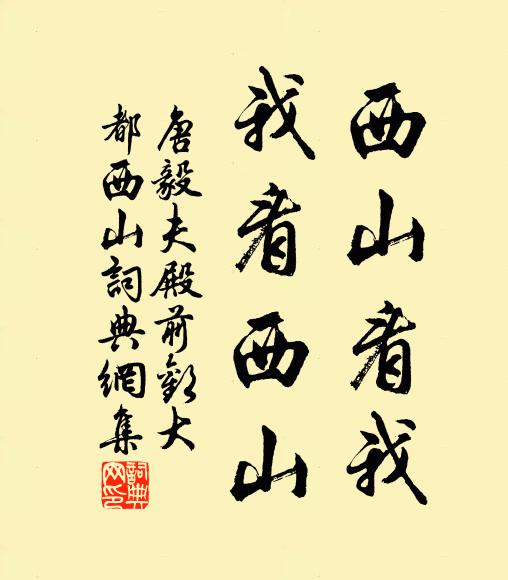 西山看我
我看西山
唐毅夫殿前歡大
都西山詞典網集
詞典
网印